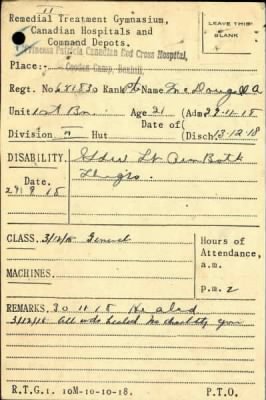 11
Remedial Treatment Gymnasium,
Canadian Hospitals and
Command Depots.
LEAVE THIS
BLANK
Princess Patricia Canadian Red Cross Hospital,
Place: Cooden Camp, Bexhill
Regt. No. 681830 Rank Pte Name McDougall A
Unit 1st Bn. Age 21 (Adm 29-11-18
Date of
Division II Hut (Disch 3-12-18
DISABILITY. GSW Lt Arm Both
Date. Thighs.
29/9/18
CLASS. 3/12/18 General
Hours of
Attendance,
MACHINES.
a.m.
p.m. 2
REMARKS. 30 11 18 Healed
3/12/18 All wds healed No disability
R.T.G.1. 10M-10-10-18. P.T.O.